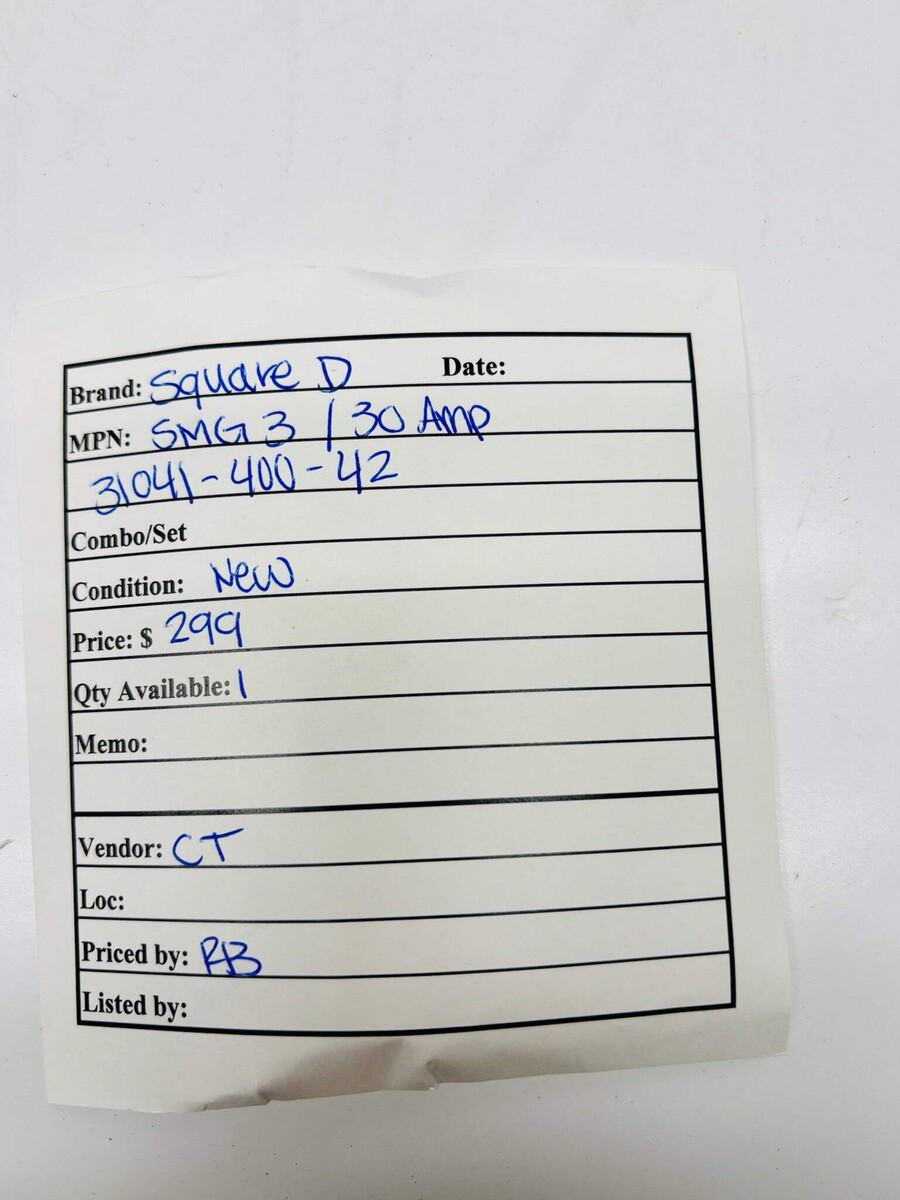 Brand: Square D Date:
MPN: SMG 3 / 30 Amp
31041-400-42
Combo/Set
Condition: New
Price: $ 299
Qty Available: 1
Memo:
Vendor: CT
Loc:
Priced by: RB
Listed by: